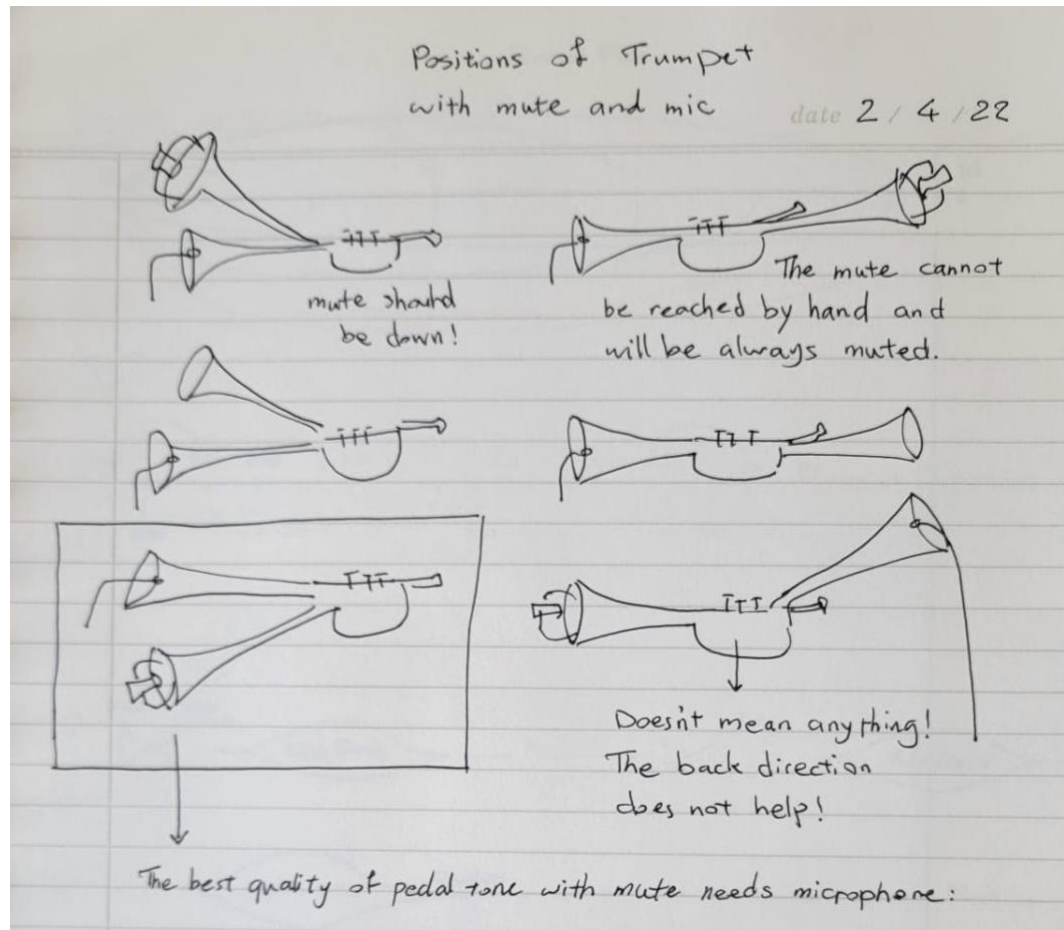 Positions of Trumpet
with mute and mic
date 2 / 4 / 22
mute should
be down!
The mute cannot
be reached by hand and
will be always muted.
Doesn't mean anything!
The back direction
does not help!
The best quality of pedal tone with mute needs microphone: